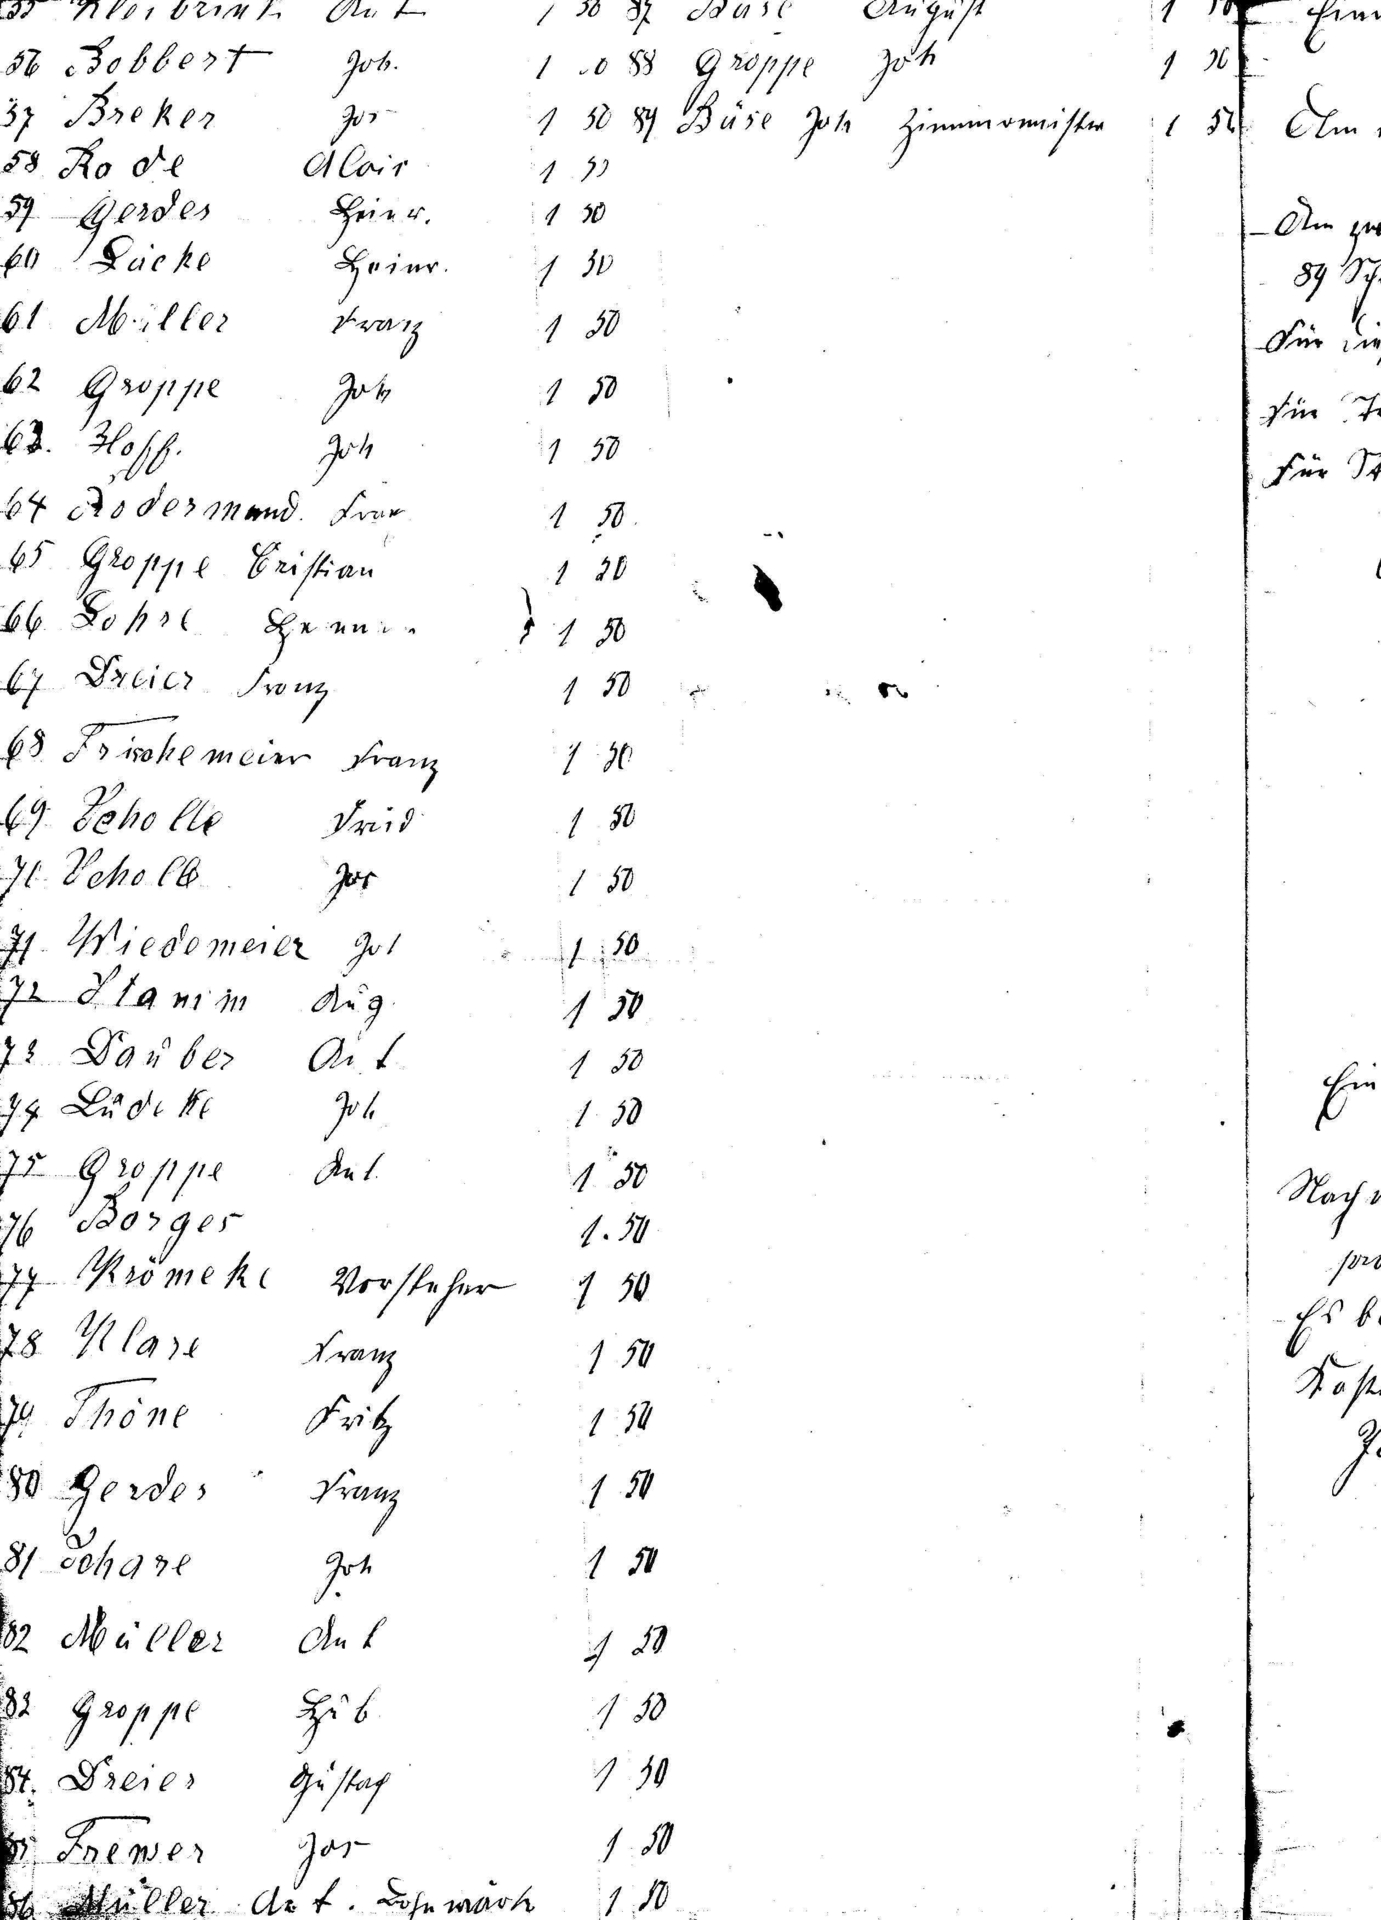 55 Kleibrink Ant 1 50
56 Bobbert Joh. 1 50
57 Breker Jos 1 50
58 Rode Alois 1 50
59 Gerdes Heinr. 1 50
60 Lücke Heinr. 1 50
61 Müller Franz 1 50
62 Groppe Joh 1 50
63. Hoff. Joh 1 50
64 Rodermund. Franz 1 50
65 Groppe Cristian 1 50
66 Lohre 1 50
67 Dreier Franz 1 50
68 Frischemeier Franz 1 50
69 Scholle Frid 1 50
70 Scholle Jos 1 50
71 Wiedemeier Jos 1 50
72 Stamm Aug. 1 50
73 Dauber Ant 1 50
74 Lüdeke Joh 1 50
75 Groppe Ant. 1 50
76 Borges 1.50
77 Krömeke Vorsteher 1 50
78 Klare Franz 1 50
79 Thöne Fritz 1 50
80 Gerdes Franz 1 50
81 Schare Joh 1 50
82 Müller Ant 1 50
83 Groppe Hub 1 50
84. Dreier Gustaf 1 50
85 Frewer Jos 1 50
86 Müller Ant. 1 50
87 Büse August 1 50
88 Groppe Joh 1 50
89 Büse Joh Zimmermeister 1 50
Am
Am
89 Sch
Für die
Für
Für St
Ein
Nach
Es